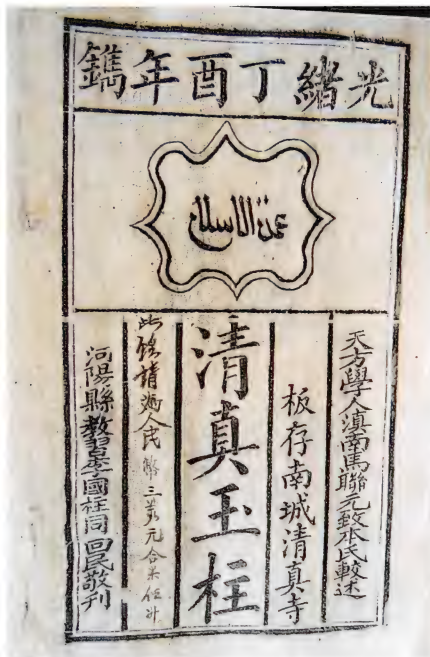 光緒丁酉年鐫
عمدة الاسلام
天方學人滇南馬聯元致本氏較述
板存南城清真寺
清真玉柱
此經請人民幣三萬元合米伍升
河陽縣教習李國柱同回民敬刊